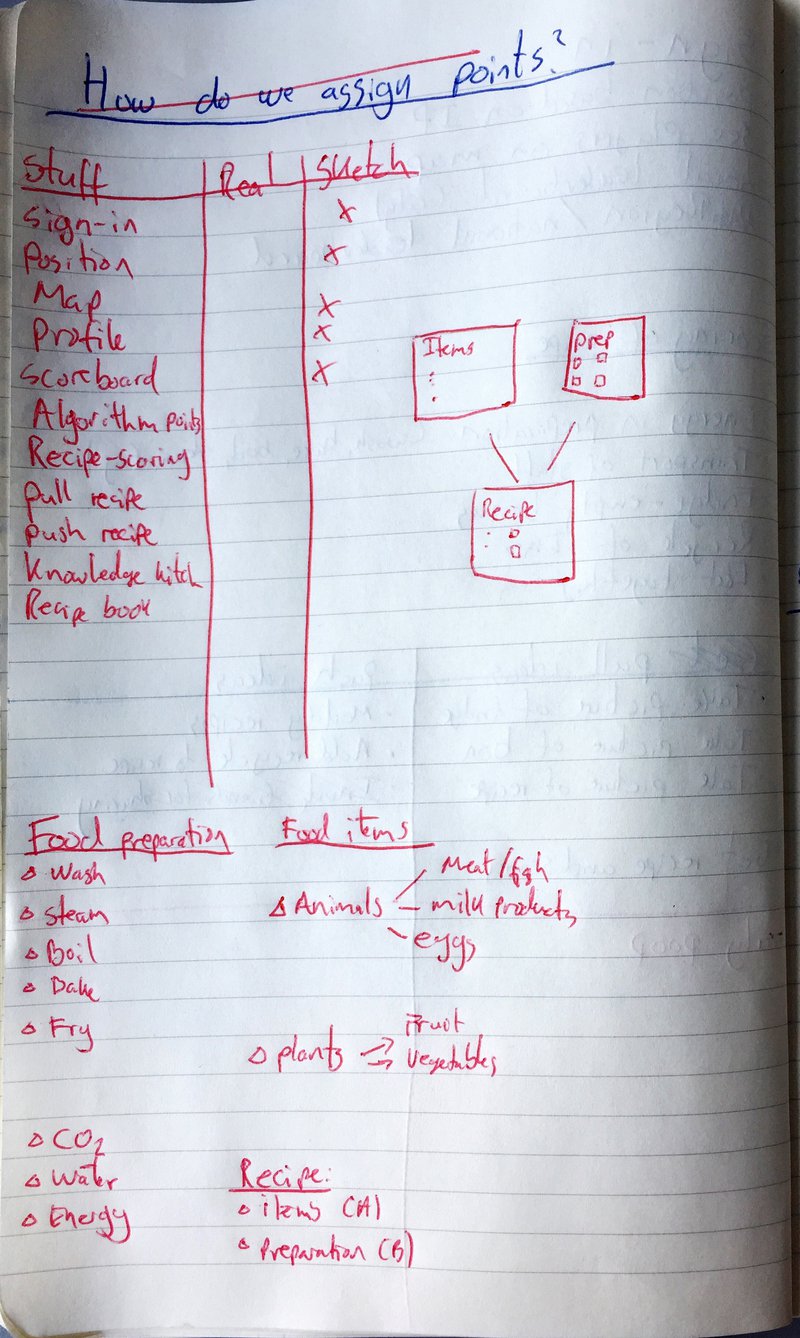 How do we assign points?
Stuff Real Sketch
Sign-in x
Position x
Map x
Profile x
Scoreboard x
Algorithm points
Recipe-scoring
pull recipe
push recipe
Knowledge kitch
Recipe book
Items
Prep
Recipe
Food preparation
Wash
Steam
Boil
Bake
Fry
CO2
Water
Energy
Food items
Animals
Meat/fish
milk products
eggs
plants
Fruit
Vegetables
Recipe:
items (A)
Preparation (B)